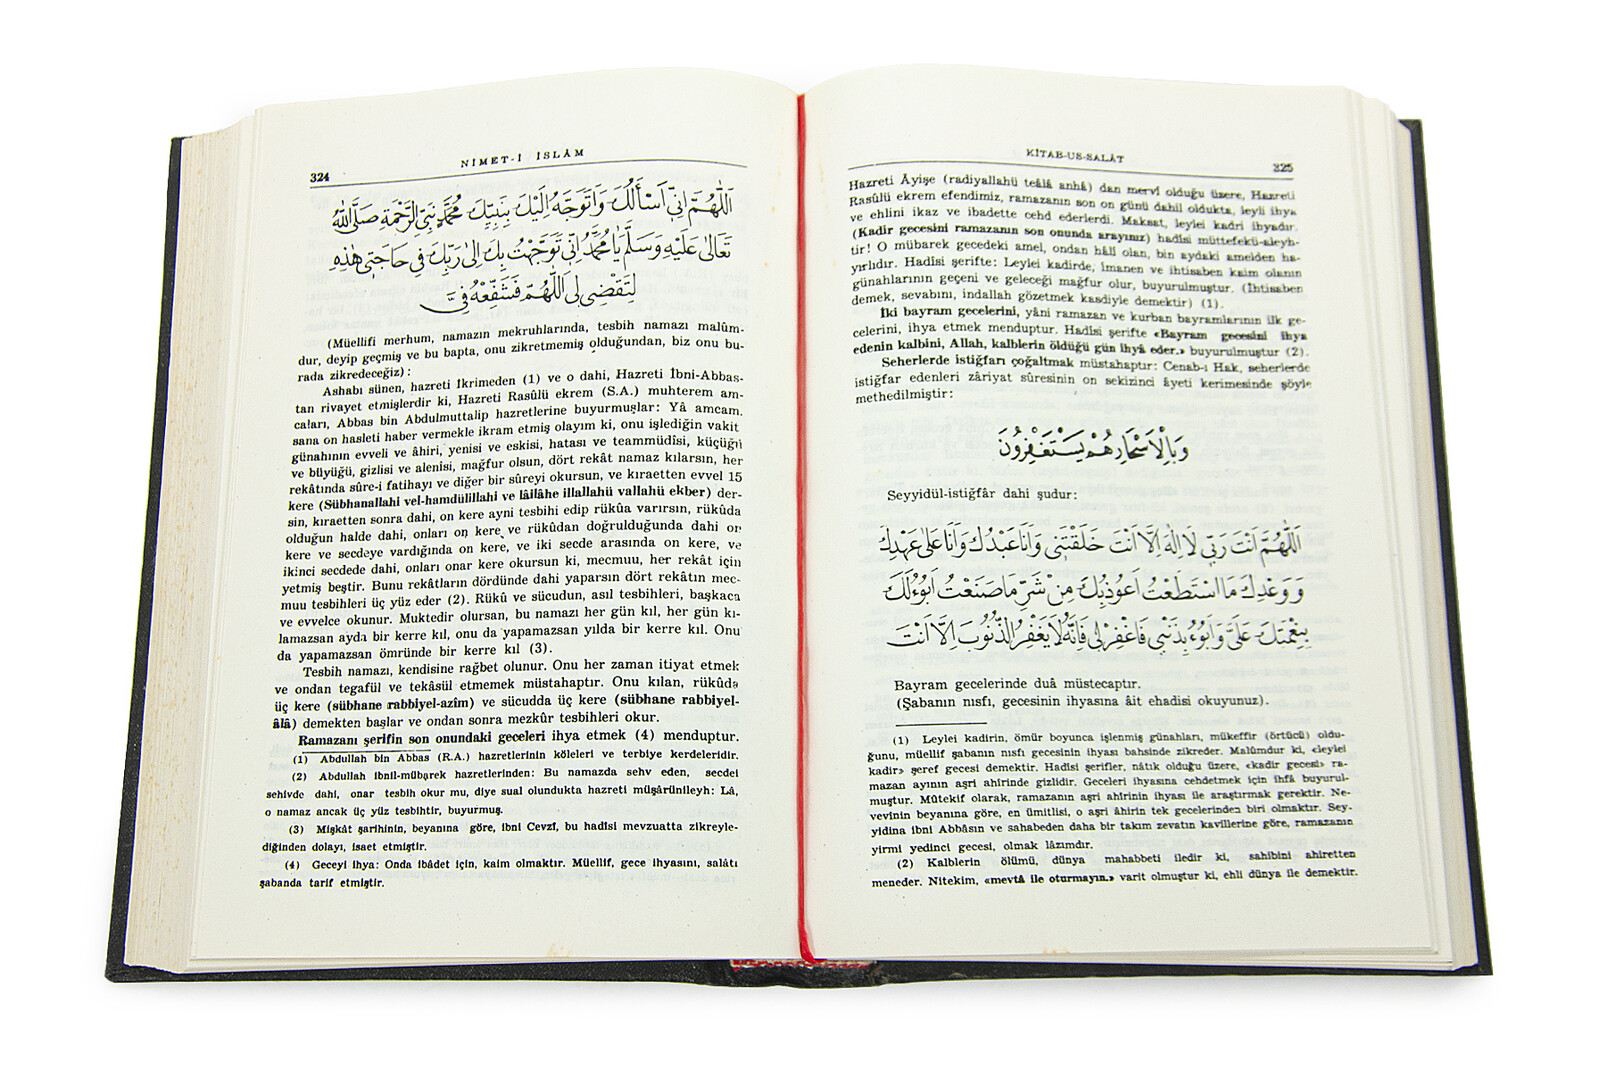 324
NİMET-İ İSLÂM
اَللّٰهُمَّ اِنّٖى اَسْأَلُكَ وَاَتَوَجَّهُ اِلَيْكَ بِنَبِيِّكَ مُحَمَّدٍ نَبِىِّ الرَّحْمَةِ صَلَّى اللّٰهُ
تَعَالٰى عَلَيْهِ وَسَلَّمَ يَا مُحَمَّدُ اِنّٖى تَوَجَّهْتُ بِكَ اِلٰى رَبِّكَ فٖى حَاجَتٖى هٰذِهٖ
لِتَقْضٰى لٖى اَللّٰهُمَّ فَشَفِّعْهُ فِىَّ
(Müellifi merhum, namazın mekruhlarında, tesbih namazı malûm-
dur, deyip geçmiş ve bu bapta, onu zikretmemiş olduğundan, biz onu bu-
rada zikredeceğiz) :
Ashabı sünen, hazreti İkrimeden (1) ve o dahi, Hazreti İbni-Abbas-
tan rivayet etmişlerdir ki, Hazreti Rasûlü ekrem (S.A.) muhterem am-
caları, Abbas bin Abdulmuttalip hazretlerine buyurmuşlar: Yâ amcam,
sana on hasleti haber vermekle ikram etmiş olayım ki, onu işlediğin vakit
günahının evveli ve âhiri, yenisi ve eskisi, hatası ve teammüdîsi, küçüğü
ve büyüğü, gizlisi ve alenisi, mağfur olsun, dört rekât namaz kılarsın, her
rekâtında sûre-i fatihayı ve diğer bir sûreyi okursun, ve kıraetten evvel 15
kere (Sübhanallahi vel-hamdülillahi ve lâilâhe illallahü vallahü ekber) der-
sin, kıraetten sonra dahi, on kere ayni tesbihi edip rükûa varırsın, rükûda
olduğun halde dahi, onları on kere ve rükûdan doğrulduğunda dahi on
kere ve secdeye vardığında on kere, ve iki secde arasında on kere, ve
ikinci secdede dahi, onları onar kere okursun ki, mecmuu, her rekât için
yetmiş beştir. Bunu rekâtların dördünde dahi yaparsın dört rekâtın mec-
muu tesbihleri üç yüz eder (2). Rükû ve sücudun, asıl tesbihleri, başkaca
ve evvelce okunur. Muktedir olursan, bu namazı her gün kıl, her gün kı-
lamazsan ayda bir kerre kıl, onu da yapamazsan yılda bir kerre kıl. Onu
da yapamazsan ömründe bir kerre kıl (3).
Tesbih namazı, kendisine rağbet olunur. Onu her zaman itiyat etmek
ve ondan tegafül ve tekâsül etmemek müstahaptır. Onu kılan, rükûda
üç kere (sübhane rabbiyel-azîm) ve sücudda üç kere (sübhane rabbiyel-
âlâ) demekten başlar ve ondan sonra mezkûr tesbihleri okur.
Ramazanı şerifin son onundaki geceleri ihya etmek (4) menduptur.
(1) Abdullah bin Abbas (R.A.) hazretlerinin köleleri ve terbiye kerdeleridir.
(2) Abdullah ibnil-mübarek hazretlerinden: Bu namazda sehv eden, secdei
sehivde dahi, onar tesbih okur mu, diye sual olundukta hazreti müşârünileyh: Lâ,
o namaz ancak üç yüz tesbihtir, buyurmuş.
(3) Mişkât şarihinin, beyanına göre, ibni Cevzî, bu hadîsi mevzuatta zikreyle-
diğinden dolayı, isaet etmiştir.
(4) Geceyi ihya: Onda ibâdet için, kaim olmaktır. Müellif, gece ihyasını, salâtı
şabanda tarif etmiştir.
KİTAB-US-SALÂT
325
Hazreti Âyişe (radiyallahü teâlâ anhâ) dan mervî olduğu üzere, Hazreti
Rasûlü ekrem efendimiz, ramazanın son on günü dahil oldukta, leyli ihya
ve ehlini ikaz ve ibadette cehd ederlerdi. Maksat, leylei kadri ihyadır.
(Kadir gecesini ramazanın son onunda arayınız) hadîsi müttefekü-aleyh-
tir! O mübarek gecedeki amel, ondan hâlî olan, bin aydaki amelden ha-
yırlıdır. Hadîsi şerifte: Leylei kadirde, imanen ve ihtisaben kaim olanın
günahlarının geçeni ve geleceği mağfur olur, buyurulmuştur. (İhtisaben
demek, sevabını, indallah gözetmek kasdiyle demektir) (1).
İki bayram gecelerini, yâni ramazan ve kurban bayramlarının ilk ge-
celerini, ihya etmek menduptur. Hadîsi şerifte «Bayram gecesini ihya
edenin kalbini, Allah, kalblerin öldüğü gün ihyâ eder.» buyurulmuştur (2).
Seherlerde istiğfarı çoğaltmak müstahaptır: Cenab-ı Hak, seherlerde
istiğfar edenleri zâriyat sûresinin on sekizinci âyeti kerimesinde şöyle
methedilmiştir:
وَبِالْاَسْحَارِ هُمْ يَسْتَغْفِرُونَ
Seyyidül-istiğfâr dahi şudur:
اَللّٰهُمَّ اَنْتَ رَبّٖى لَا اِلٰهَ اِلَّا اَنْتَ خَلَقْتَنٖى وَاَنَا عَبْدُكَ وَاَنَا عَلٰى عَهْدِكَ
وَوَعْدِكَ مَا اسْتَطَعْتُ اَعُوذُ بِكَ مِنْ شَرِّ مَا صَنَعْتُ اَبُوءُ لَكَ
بِنِعْمَتِكَ عَلَىَّ وَاَبُوءُ بِذَنْبٖى فَاغْفِرْ لٖى فَاِنَّهُ لَا يَغْفِرُ الذُّنُوبَ اِلَّا اَنْتَ
Bayram gecelerinde duâ müstecaptır.
(Şabanın nısfı, gecesinin ihyasına âit ehadîsi okuyunuz).
(1) Leylei kadirin, ömür boyunca işlenmiş günahları, mükeffir (örtücü) oldu-
ğunu, müellif şabanın nısfı gecesinin ihyası bahsinde zikreder. Malûmdur ki, «leylei
kadir» şeref gecesi demektir. Hadîsi şerifler, nâtık olduğu üzere, «kadir gecesi» ra-
mazan ayının aşri ahîrinde gizlidir. Geceleri ihyasına cehdetmek için ihfâ buyurul-
muştur. Mûtekif olarak, ramazanın aşri ahîrinin ihyası ile araştırmak gerektir. Ne-
vevînin beyanına göre, en ümitlisi, o aşri âhirin tek gecelerinden biri olmaktır. Sey-
yidina ibni Abbâsın ve sahabeden daha bir takım zevatın kavillerine göre, ramazanın
yirmi yedinci gecesi, olmak lâzımdır.
(2) Kalblerin ölümü, dünya mahabbeti iledir ki, sahibini ahiretten
meneder. Nitekim, «mevtâ ile oturmayın.» varit olmuştur ki, ehli dünya ile demektir.